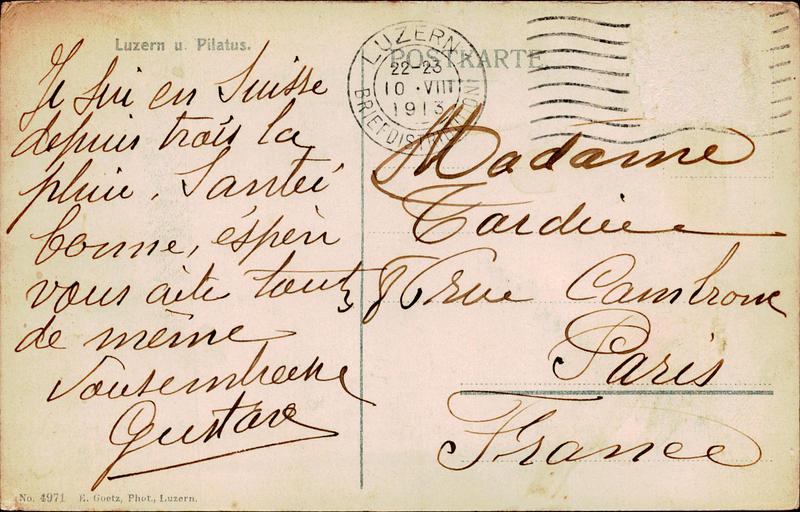 Luzern u. Pilatus.
POSTKARTE
LUZERN
22-23
10·VIII
1913
BRIEFDISTRIBUTION
Je sui en Suisse
depuis trois la
pluie. Santéi
bonne, éspèri
vous aite toute
de même
Vousembrasse
Gustave
Madame
Tardieu
86 rue Cambrone
Paris
France
No. 4971 E. Goetz, Phot., Luzern.